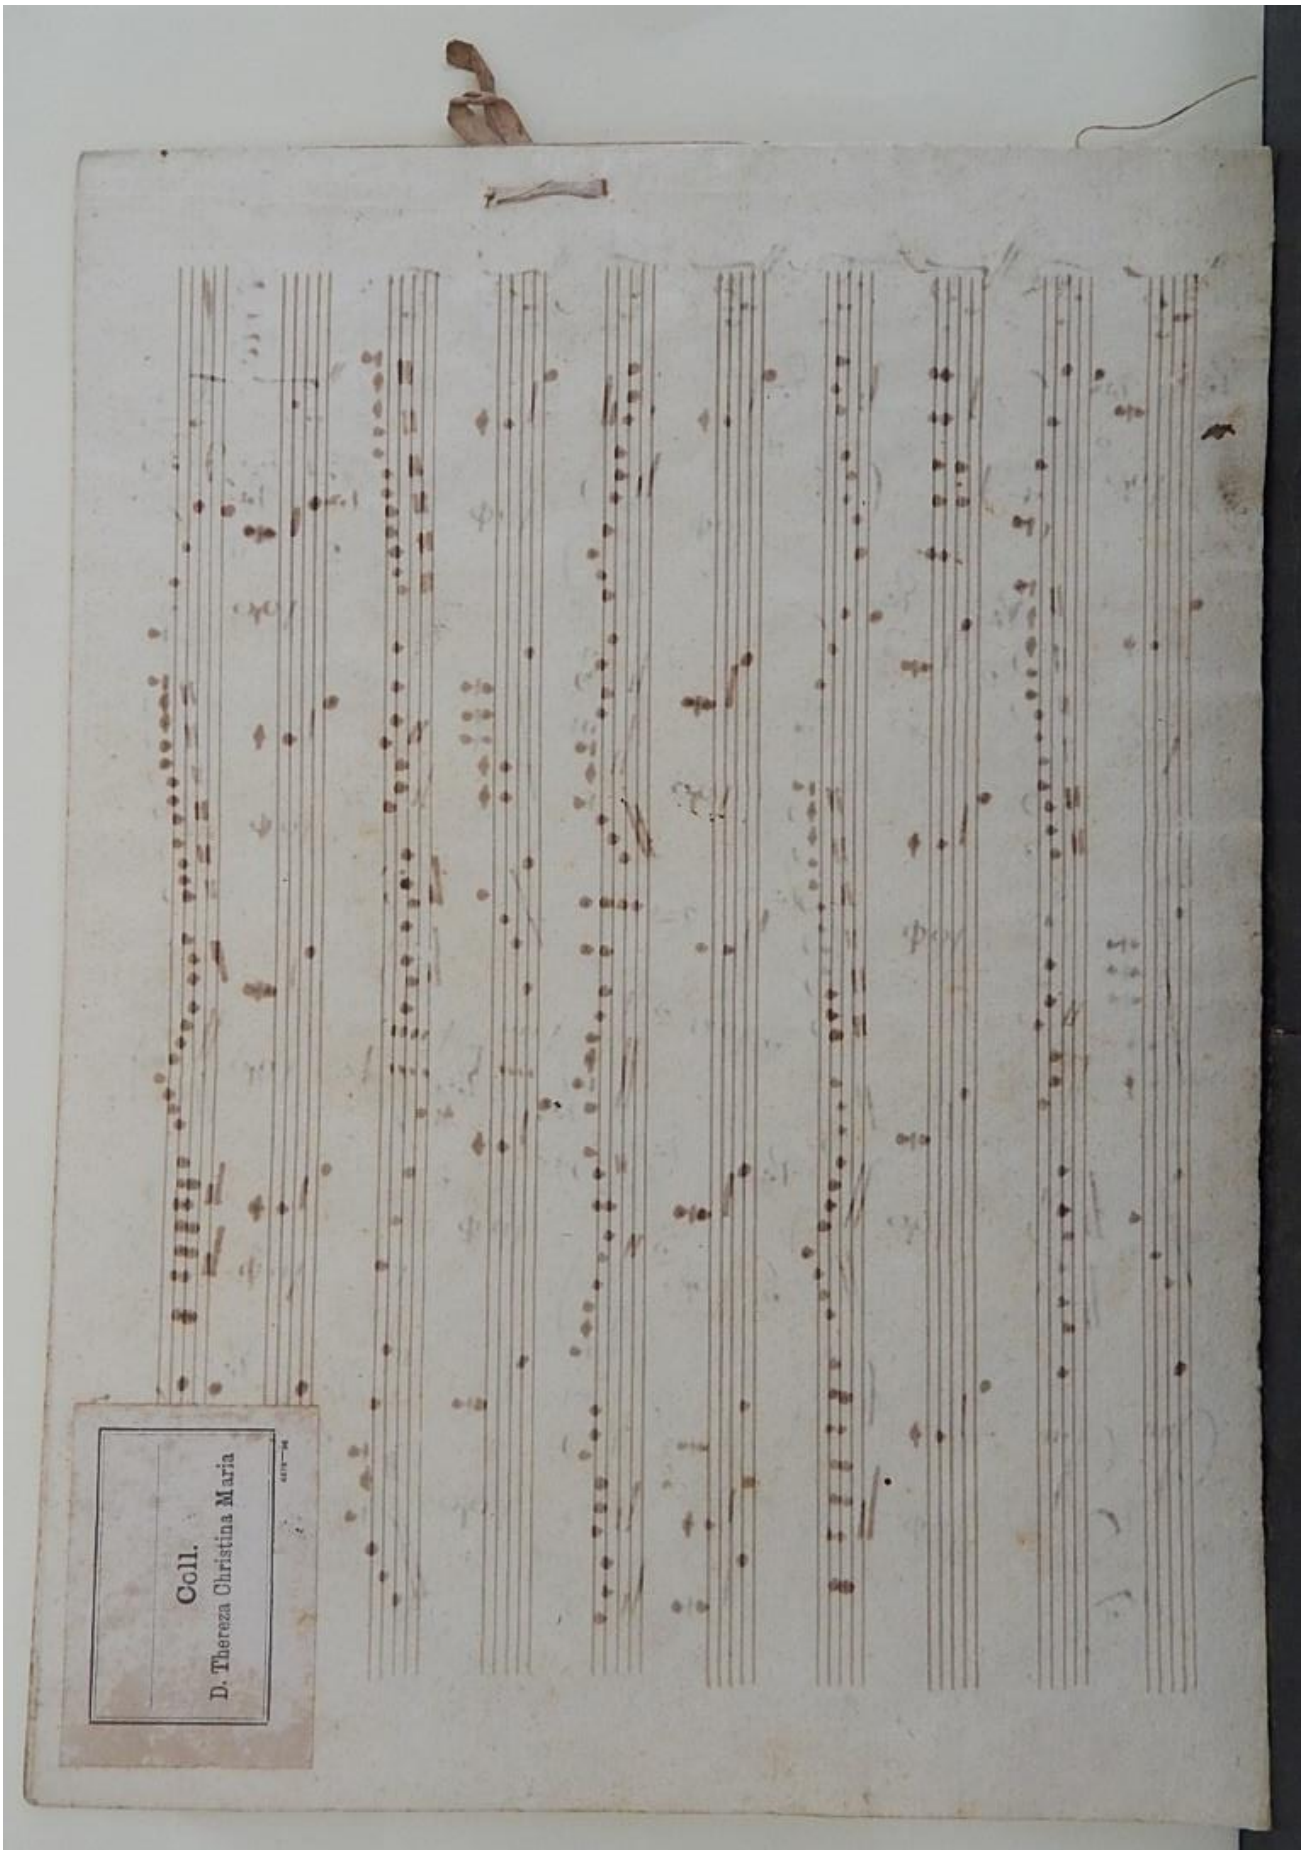 Coll.
D. Thereza Christina Maria